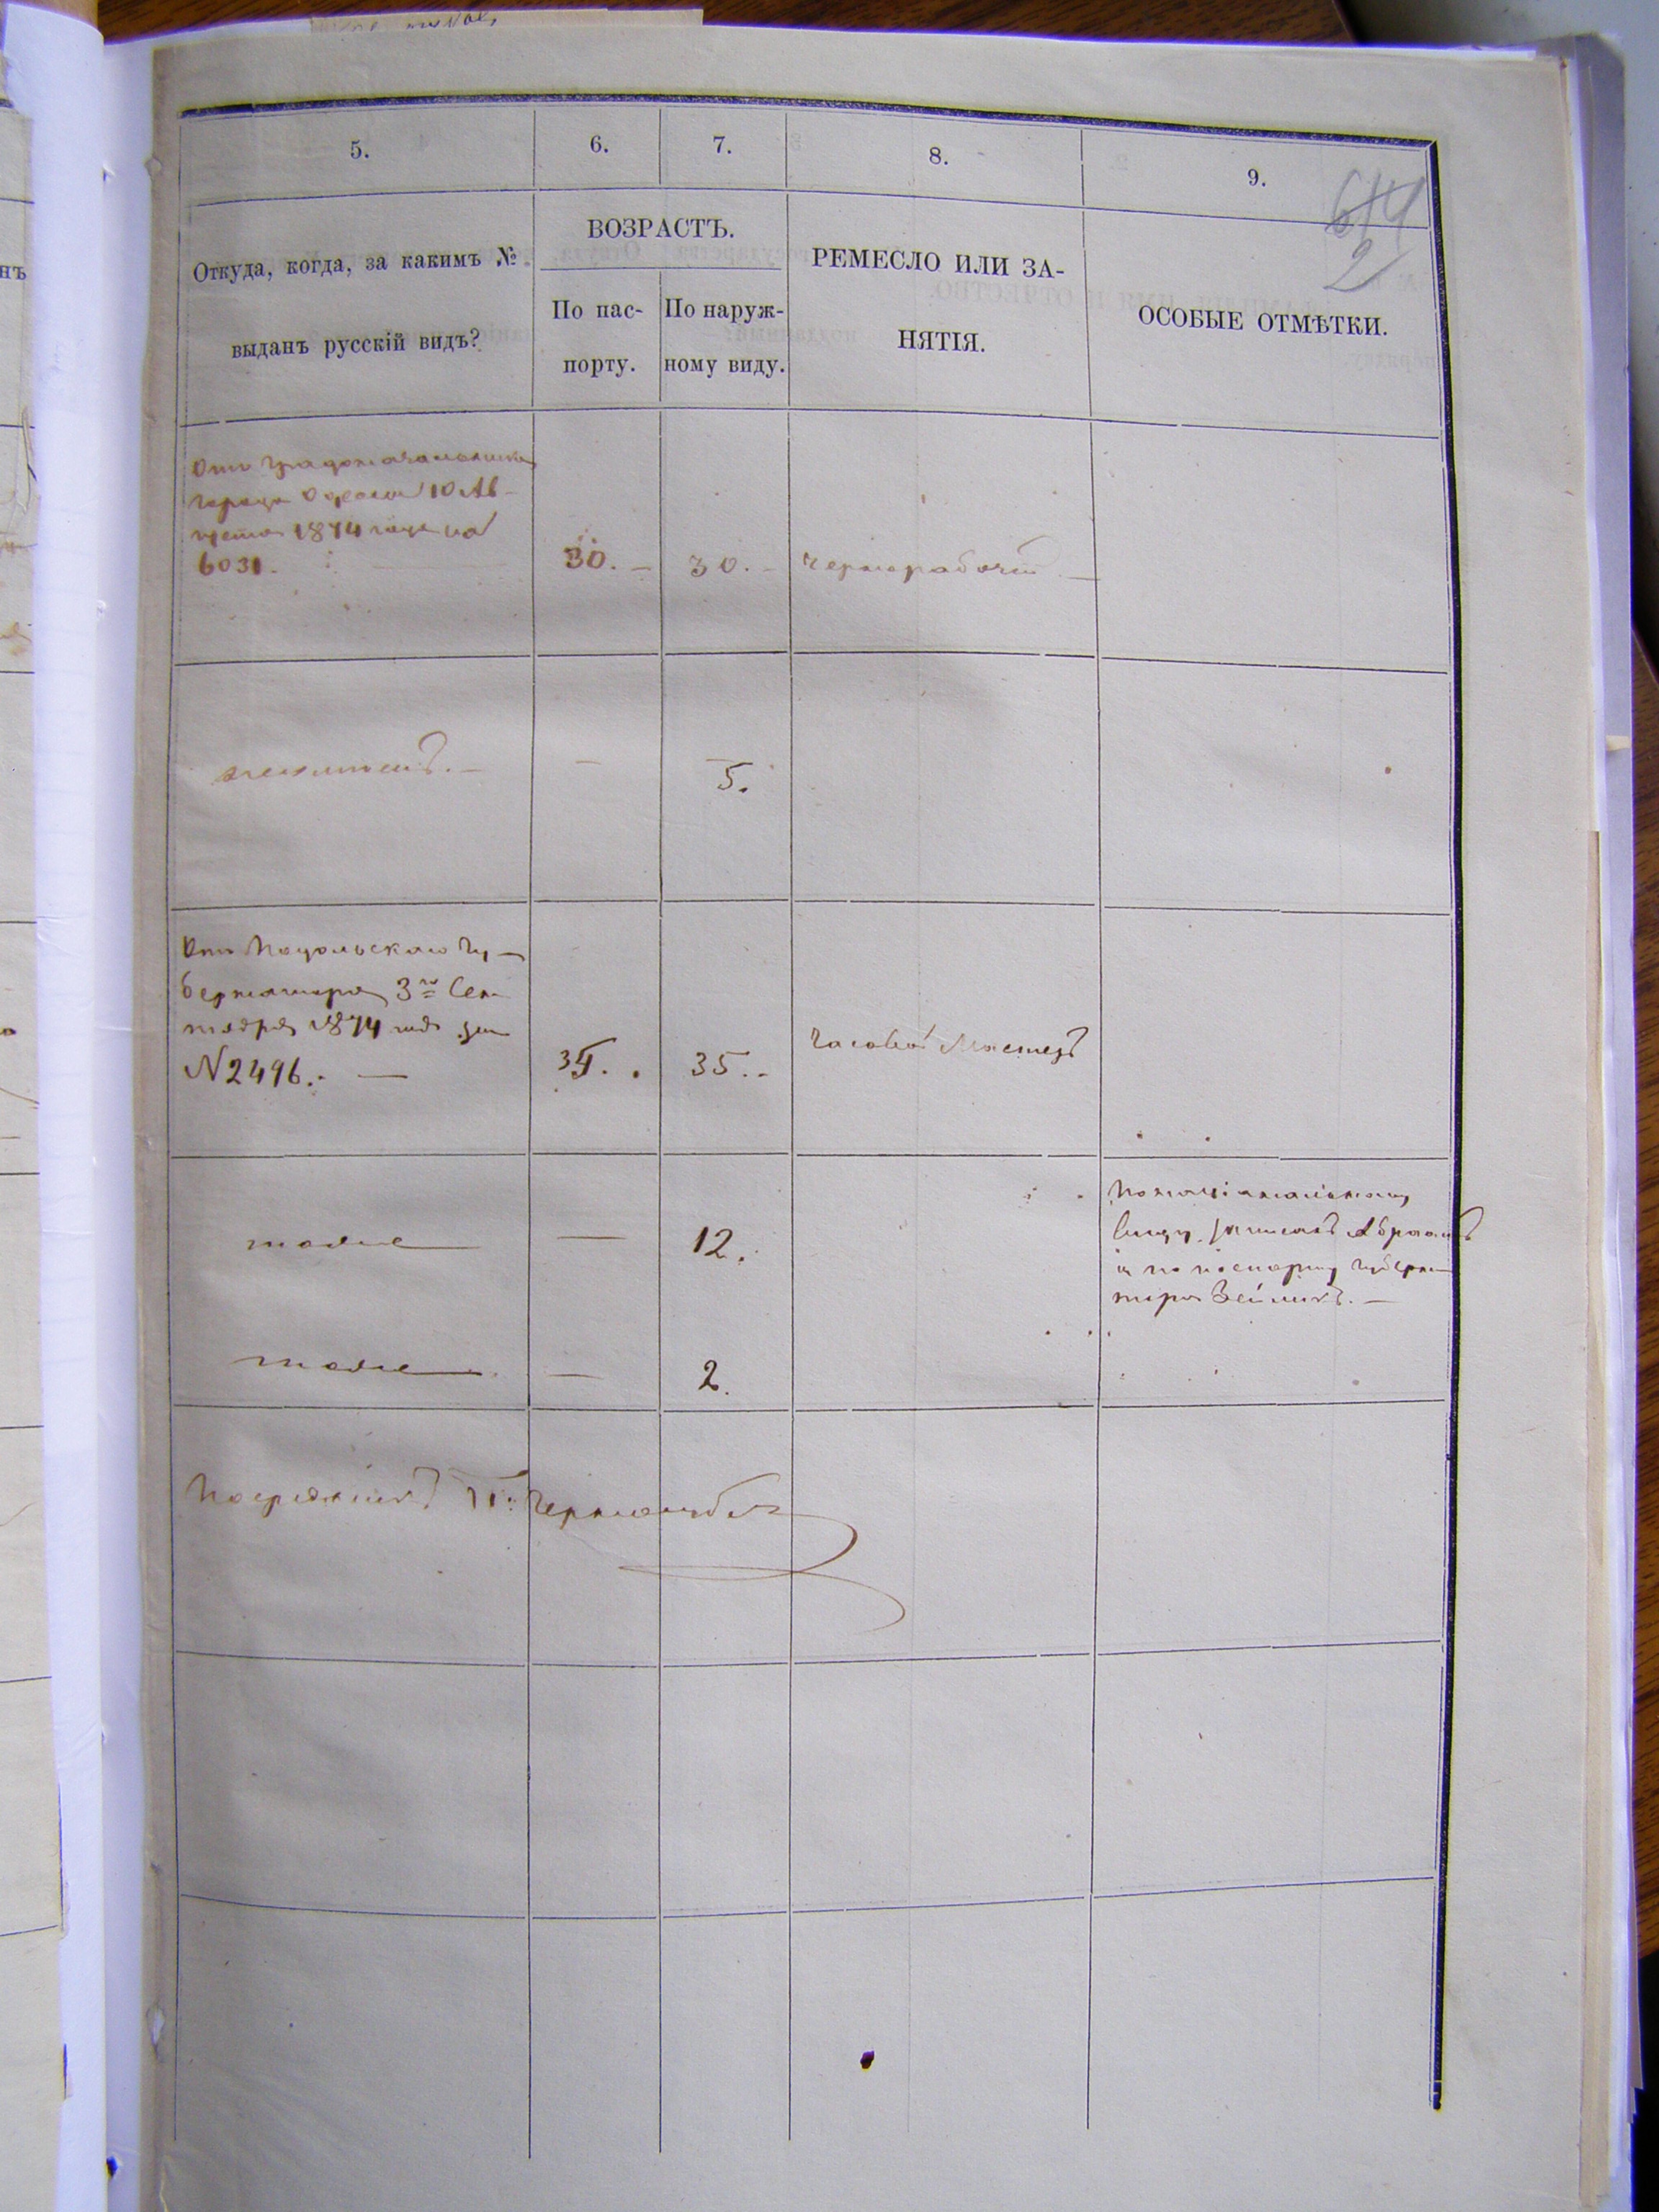 5.
6.
7.
8.
9.
614
2
Откуда, когда, за какимъ №
выданъ русскій видъ?
ВОЗРАСТЪ.
По пас-
порту.
По наруж-
ному виду.
РЕМЕСЛО ИЛИ ЗА-
НЯТІЯ.
ОСОБЫЕ ОТМѢТКИ.
Отъ Градоначальника
города Одессы 10 Ав-
густа 1874 года
6031.
30.
30.
чернорабочій
5.
Отъ Подольскаго Гу-
бернатора 3го Сен
тября 1874 года за
N 2496.
35.
Часовой Мастеръ
тоже
12.
По національному
виду записанъ Абрамъ
а по паспорту Губерна
тора Зейликъ.
тоже
2.
Посредникъ